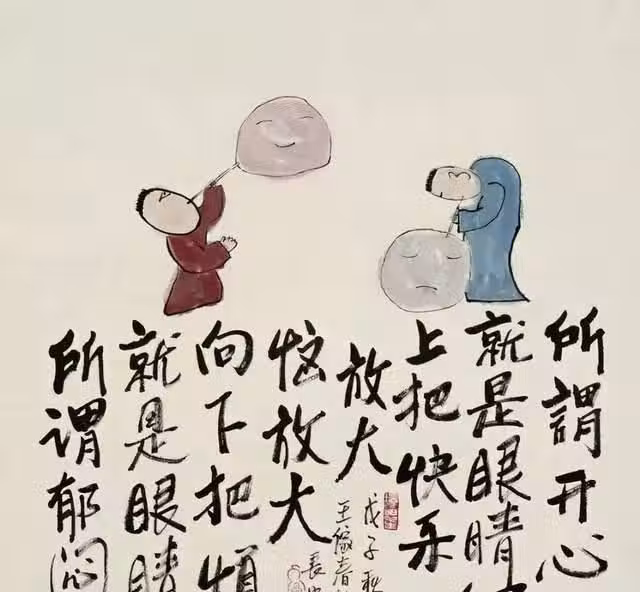 所謂开心
就是眼睛
上把快乐
放大
所谓郁闷
就是眼睛
向下把烦
恼放大
戊子秋